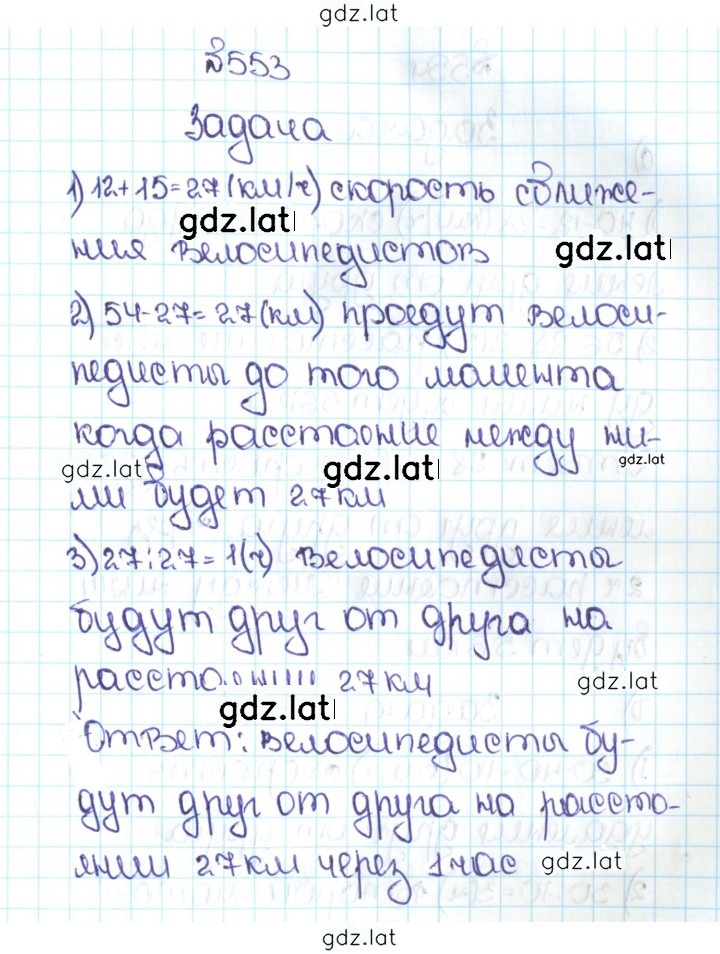 gdz.lat
№553
Задача
1) 12+15=27(км/ч) скорость сближе-
gdz.lat
ния велосипедистов gdz.lat
2) 54-27=27(км) проедут велоси-
педисты до того момента
когда расстояние между ни-
gdz.lat gdz.lat gdz.lat
ми будет 27км
3) 27:27=1(ч) велосипедисты
будут друг от друга на
27км gdz.lat
gdz.lat
Ответ: велосипедисты бу-
дут друг от друга на рассто-
янии 27км через 1час gdz.lat
gdz.lat